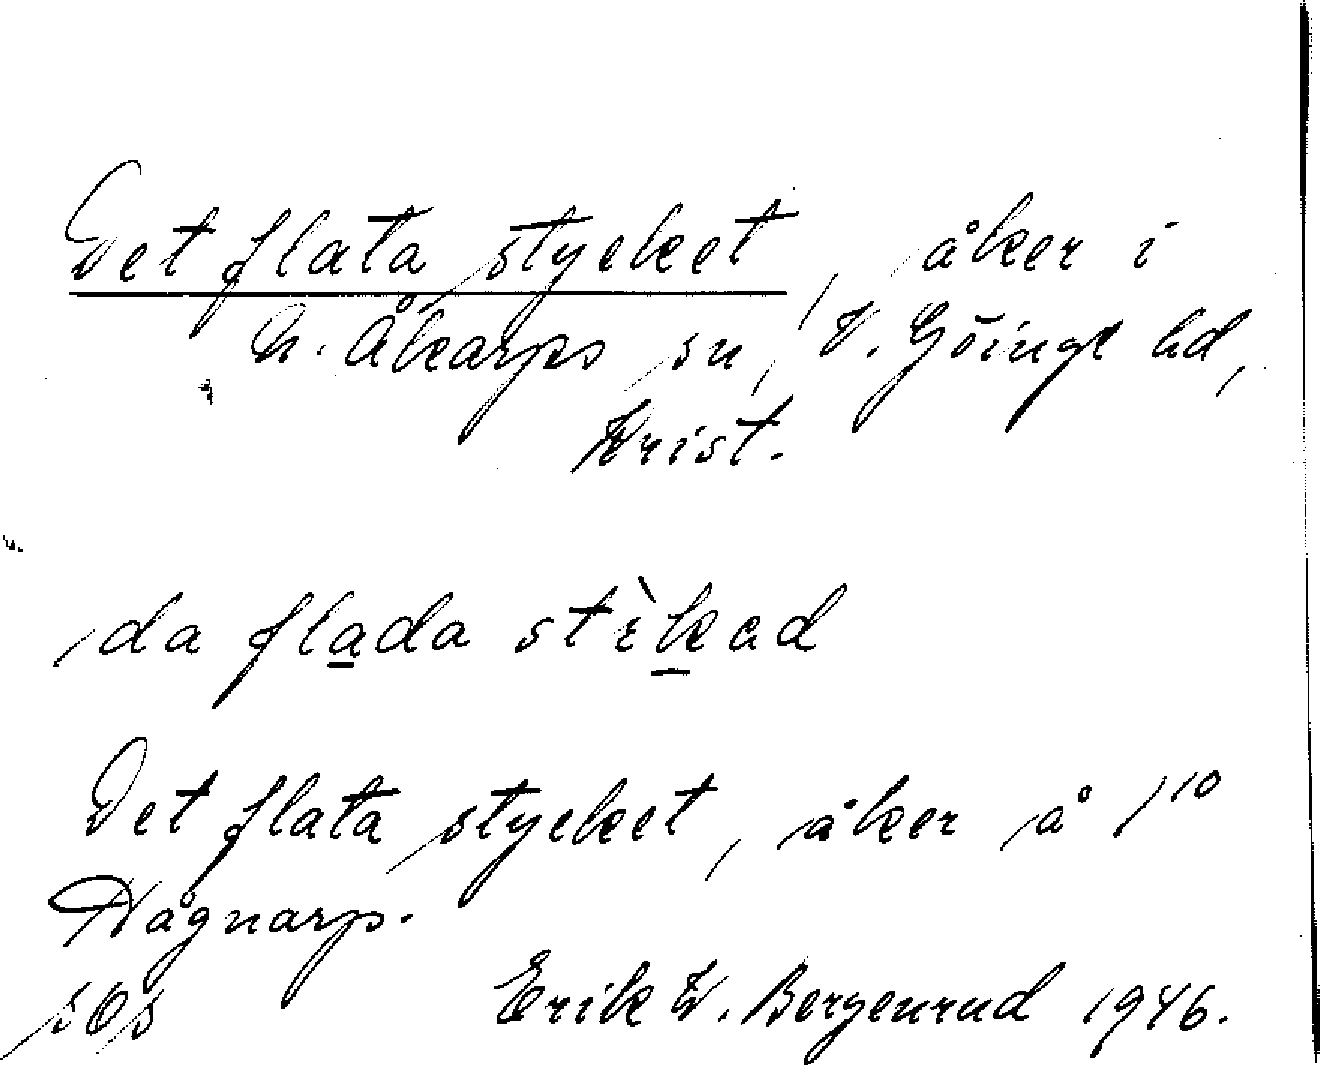 Det flata stycket, åker i
N. Åkarps sn, V. Göinge hd,
Krist.
da flada stìkad
Det flata stycket, åker å 1¹⁰
Hågnarp.
Erik W. Bergenrud 1946.